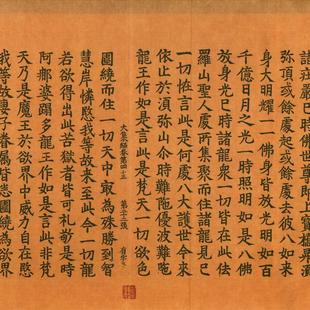 諸莊嚴巳時佛世尊即上寶梯昇須
弥頂或餘處起或餘處去彼八如来
身大明耀一一佛身皆放光明如百
千億日月之光一時照明如是八佛
放身光巳時諸龍衆一切皆在此佉
羅山聖人處所集聚而住諸龍見巳
一切恠言此是何處八大護世今来
依止於湏弥山尒時難陁優波難陁
龍王作如是言此是梵天一切欲色
大集經卷第四十三 第二十三張
圍繞而住一切天中㝡為殊勝到智
慧岸憐愍我等故来至此今一切龍
若欲得出此苦獄者皆可礼敬是時
阿那婆蹹多龍王作如是言此非梵
天乃是魔王於欲界中威力自在愍
我等故 子眷属皆悉圍繞為欲界